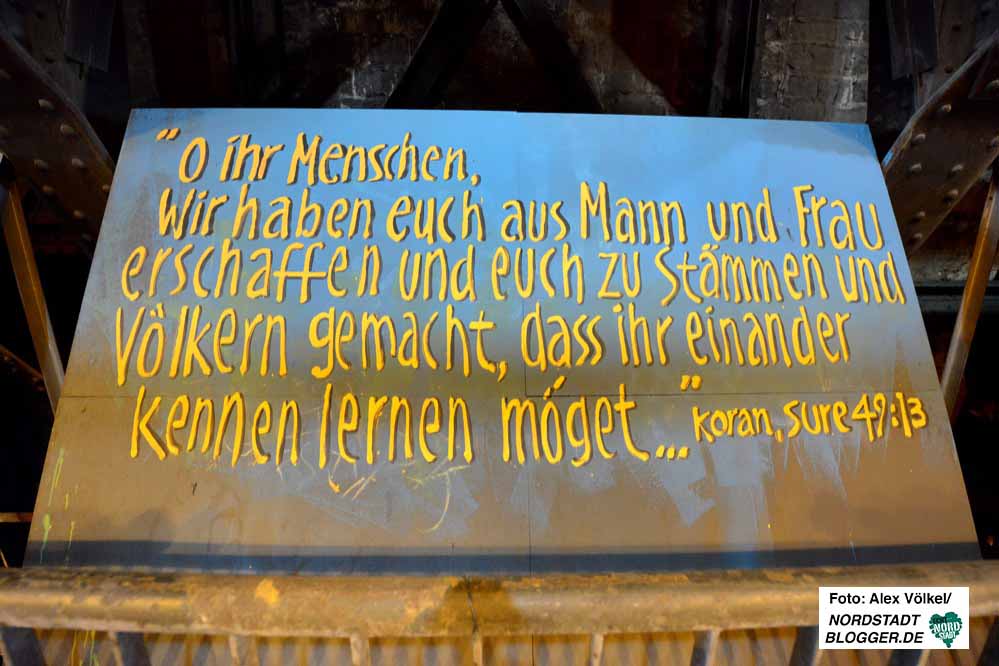 "O ihr Menschen,
Wir haben euch aus Mann und Frau
erschaffen und euch zu Stämmen und
Völkern gemacht, dass ihr einander
kennen lernen möget..." Koran, Sure 49:13
Foto: Alex Völkel/
NORDSTADT
BLOGGER.DE
NORD
STADT